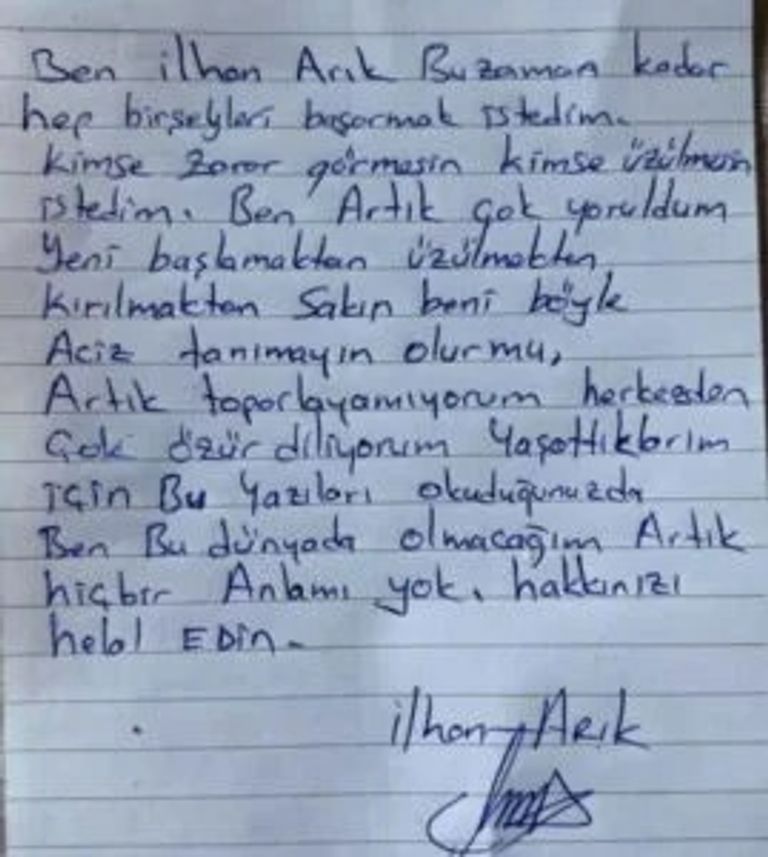 Ben ilhan Arık Bu zaman kadar
hep birşeyleri başarmak istedim.
Kimse zarar görmesin kimse üzülmesin
istedim. Ben Artık çok yoruldum
Yeni başlamaktan üzülmekten
Kırılmaktan Sakın beni böyle
Aciz tanımayın olurmu,
Artık toparlayamıyorum herkesden
Çok özür diliyorum Yaşattıklarım
için Bu Yazıları okuduğunuzda
Ben Bu dünyada olmacağım Artık
hiçbir Anlamı yok. hakkınızı
helal EDin.
ilhan Arık